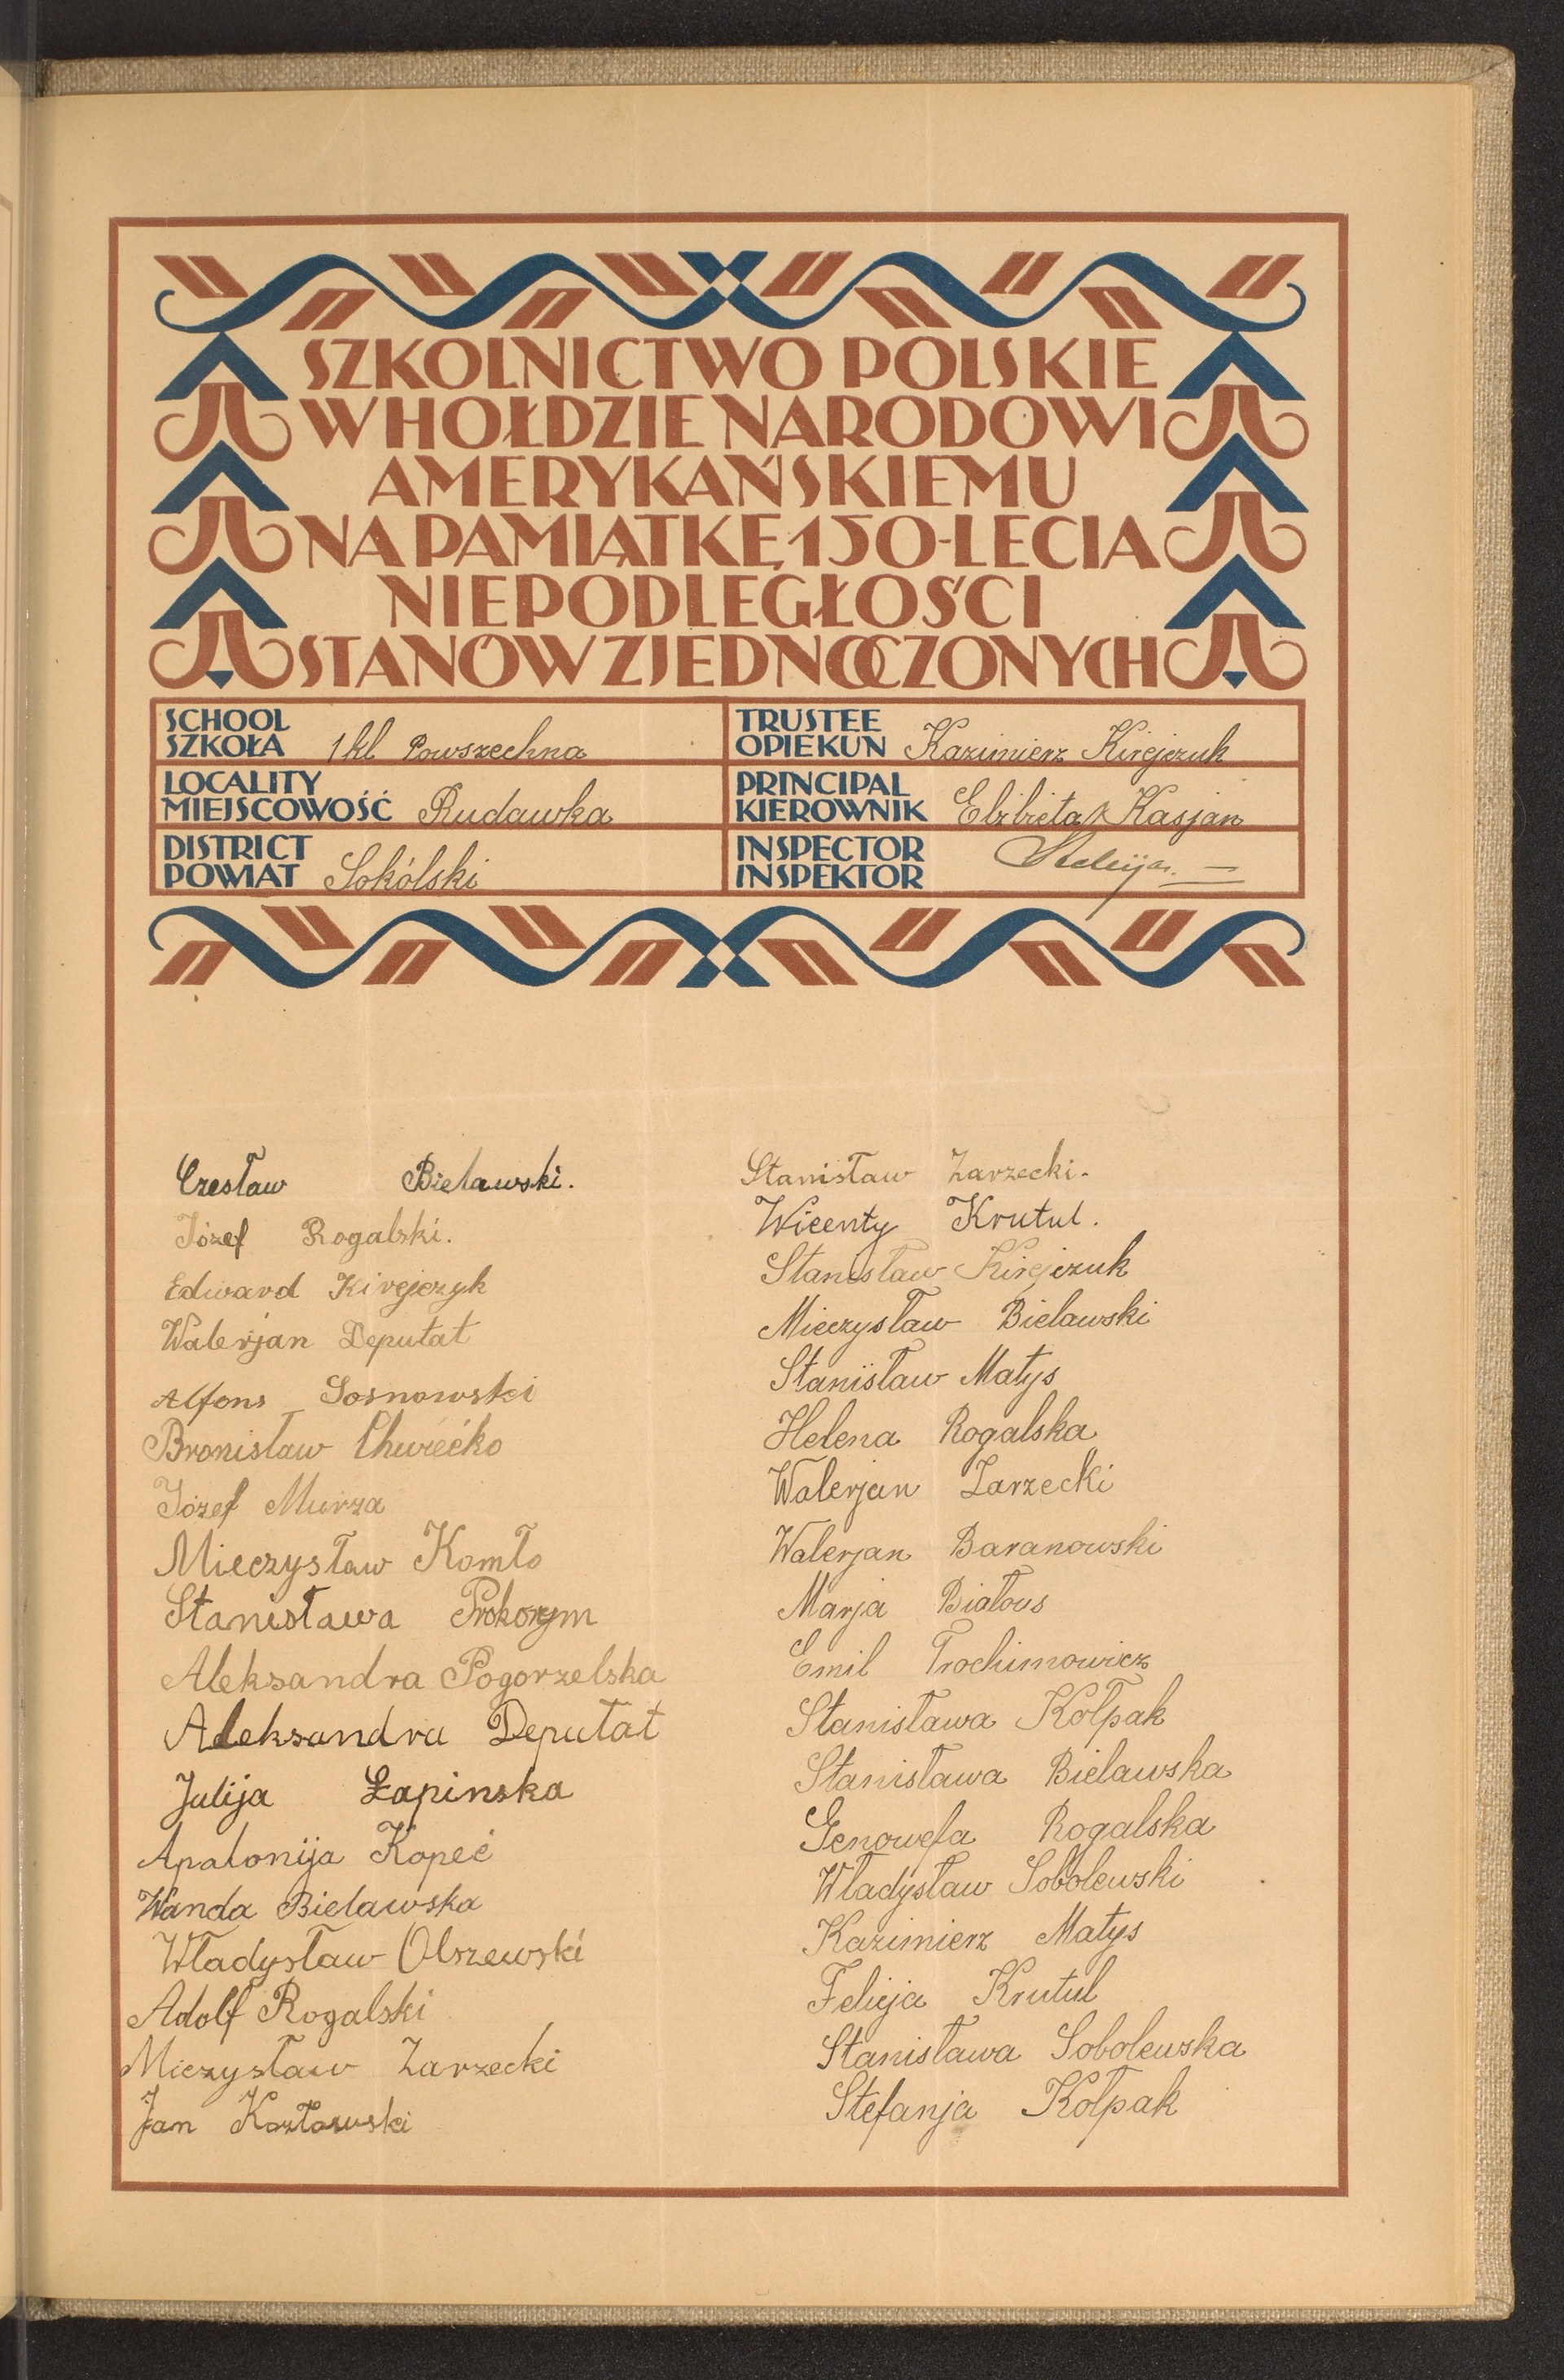 SZKOLNICTWO POLSKIE
W HOŁDZIE NARODOWI
AMERYKAŃSKIEMU
NA PAMIĄTKĘ 150-LECIA
NIEPODLEGŁOŚCI
STANÓW ZJEDNOCZONYCH
SCHOOL
SZKOŁA 1 kl Powszechna
TRUSTEE
OPIEKUN Kazimierz Kirejczuk
LOCALITY
MIEJSCOWOŚĆ Rudawka
PRINCIPAL
KIEROWNIK Elżbieta Kasjan
DISTRICT
POWIAT Sokólski
INSPECTOR
INSPEKTOR
Czesław Bielawski.
Józef Rogalski.
Edward Kirejczyk
Walerjan Deputat
Alfons Sosnowski
Bronisław Chwiećko
Józef Murza
Mieczysław Komło
Stanisława Prokorym
Aleksandra Pogorzelska
Aleksandra Deputat
Julija Łapinska
Apalonija Kopeć
Wanda Bielawska
Władysław Olszewski
Adolf Rogalski
Mieczysław Zarzecki
Jan Kozłowski
Stanisław Zarzecki.
Wicenty Krutul.
Stanisław Kirejczuk
Mieczysław Bielawski
Stanisław Matys
Helena Rogalska
Walerjan Zarzecki
Walerjan Baranowski
Marja Białous
Emil Trochimowicz
Stanisława Kołpak
Stanisława Bielawska
Genowefa Rogalska
Władysław Sobolewski
Kazimierz Matys
Felicja Krutul
Stanisława Sobolewska
Stefanja Kołpak